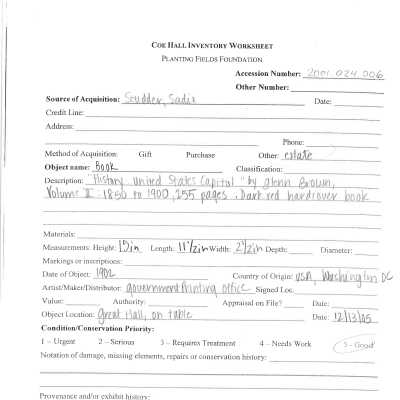 COE HALL INVENTORY WORKSHEET
PLANTING FIELDS FOUNDATION
Accession Number: 2001.024.006
Other Number:
Source of Acquisition: Scudder, Sadie Date:
Credit Line:
Address:
Phone:
Method of Acquisition: Gift Purchase Other: estate
Object name: Book Classification:
Description: "History United States Capitol" by Glenn Brown,
Volume II: 1850 to 1900, 255 pages. Dark red hardcover book
Materials:
Measurements: Height: 15in Length: 11 1/2in Width: Depth: Diameter:
Markings or inscriptions:
Date of Object: 1902 Country of Origin: USA, Washington DC
Artist/Maker/Distributor: government Printing office Signed Loc.
Value: Authority: Appraisal on File? Date:
Object Location: Great Hall, on table Date: 12/13/05
Condition/Conservation Priority:
1 – Urgent 2 – Serious 3 – Requires Treatment 4 – Needs Work 5 – Good
Notation of damage, missing elements, repairs or conservation history:
Provenance and/or exhibit history: